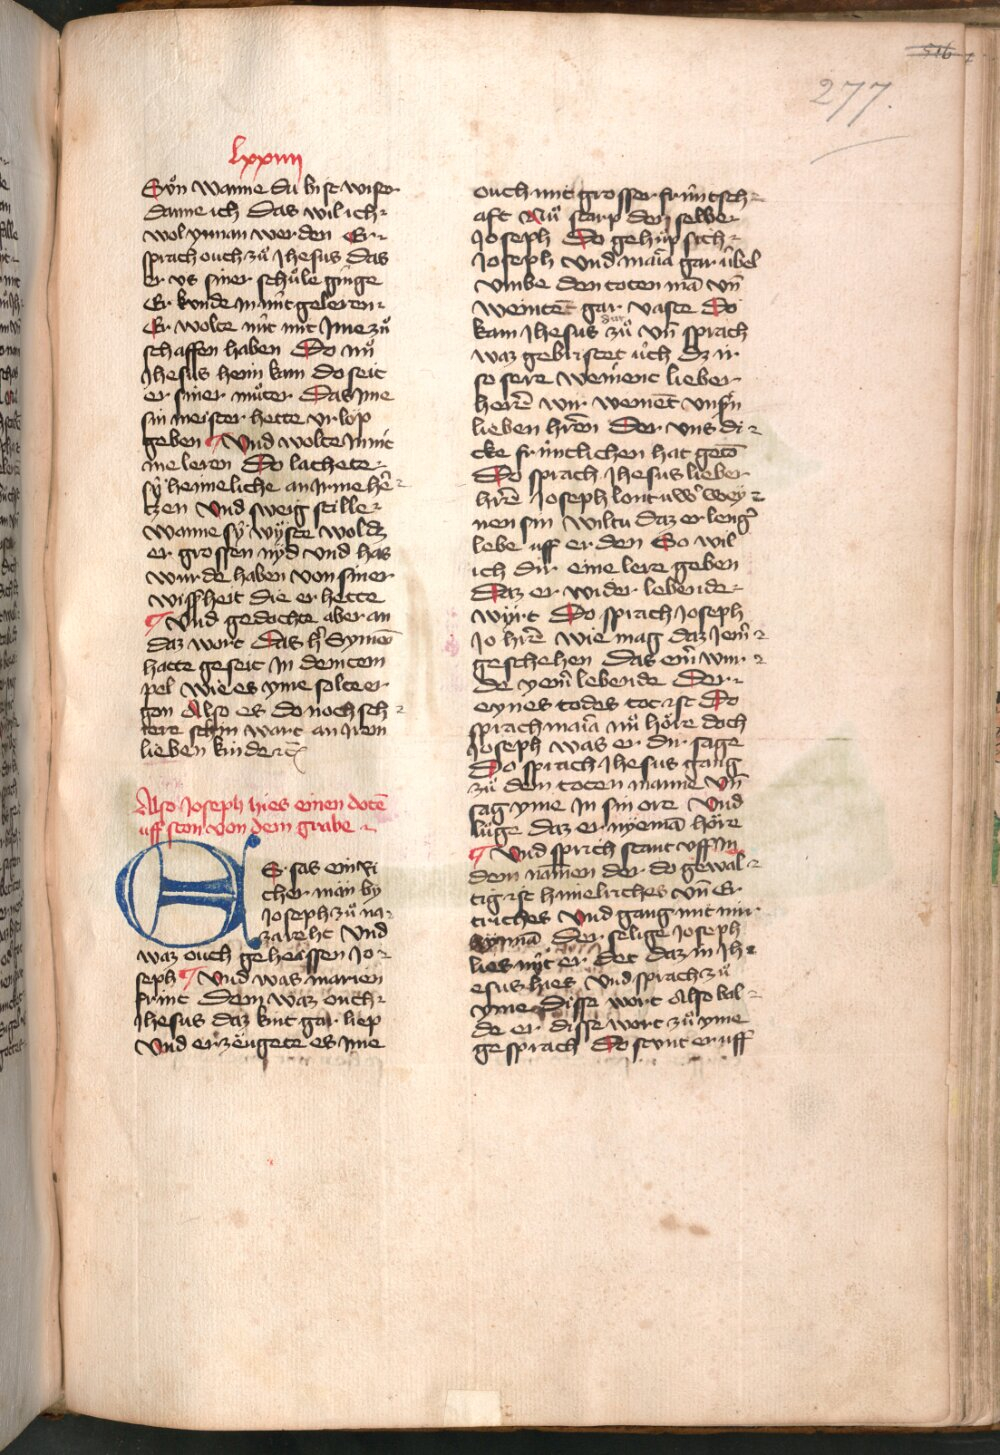 277.
lxxiiij
Sún wanne du bist wiser
danne ich Das wil ich
wol ynnan werden Er
sprach ouch zů Jhesus das
er vs siner schůle ginge
Er kunde in nút geleren
Er wolte nút mit Ime zů
schaffen haben Do nů
Jhesus heim kam do seit
er siner můter Das Ime
sin meister hette vrlop
geben Und wolte In nit
me leren Do lachete
sy heimeliche an Irme hˀ
tzen Und sweig stille
wanne sy wyste wold dz
er grossen nyd und has
wurde haben von siner
wissheit die er hette
Und gedochte aber an
daz wort Das hˀ Symeō
hatte geseit In dem tem
pel wie es yme solte er
gon Also es do noch sch
iere schin wart an Irem
lieben kinde etc̄
Also Joseph hies einen dotē
uff ston von dem grabe
ES sas ein Ri
cher man by
Joseph zů na
zareht Und
waz ouch geheissen Jo
seph Und was marien
frint Dem waz ouch
Jhesus daz kint gar liep
Und erzöugete es Ime
ouch mit grosser frúntsch
aft Nů starp der selbe
Joseph Do gehůp sich
Joseph und maīa gar úbel
umbe den toten mā vn̄
weintēt gar vaste Do
kam Jhesus dar zů vn̄ sprach
waz gebristet úch dz ir
so sere weinent lieber
herē wir weinēt unsˀn
lieben hrēn Der uns di
cke frúntlichen hat getō
Do sprach Jhesus lieber
hrē Joseph lont uwˀ wey
nen sin wiltu daz er lengˀ
lebe uff erden So wil
ich dir eine lere geben
Daz er wider lebende
wyrt Do sprach Joseph
Jo hrē wie mag daz Jemˀ
geschehen das eim̄ wur
de yemˀ lebende Der
eynes todes tot ist Do
sprach maīa nů höre doch
Joseph was er dir sage
Do sprach Jhesus gang
zů dem toten manne vn̄
sag yme In sin ore Und
lůge daz er nyemā höre
Und sprich stant uff In
dem namen der do gewal
tig ist himelriches vn̄ Er
triches Und gang mit mir
Der selige Joseph
lies nyt er det daz in Jh
esus hies Und sprach zů
yme disse wort Also bal
de er disse wort zů yme
gesprach Do stunt er uff